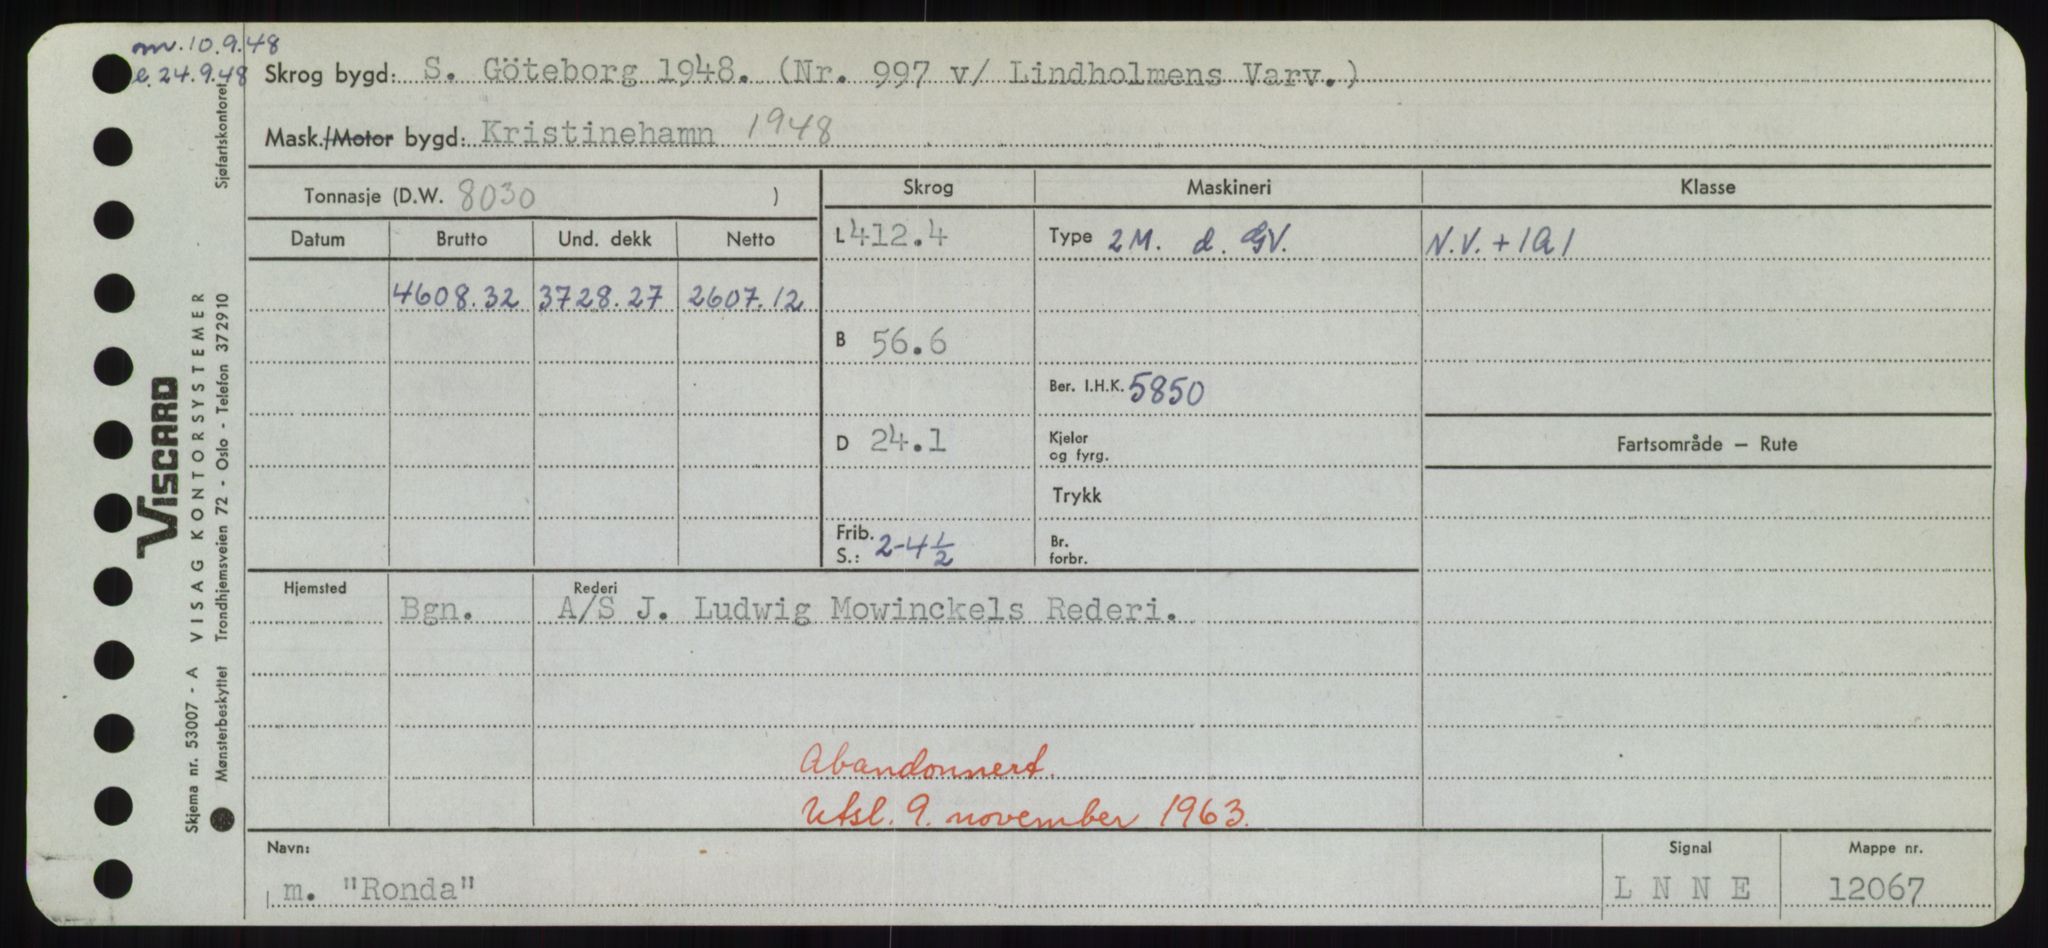 mv. 10.9.48
e. 24.9.48
Skrog bygd: S. Göteborg 1948. (Nr. 997 v/ Lindholmens Varv.)
Mask./Motor bygd: Kristinehamn 1948
Tonnasje (D.W. 8030 )
Skrog
Maskineri
Klasse
Datum
Brutto
Und. dekk
Netto
L 412.4
Type 2 M. d. GV.
N.V. + 1A1
4608.32 3728.27 2607.12
B 56.6
Ber. I.H.K. 5850
D 24.1
Kjeler
og fyrg.
Fartsområde — Rute
Trykk
Frib.
S.: 2-4 1/2
Br.
forbr.
Hjemsted
Rederi
Bgn. A/S J. Ludwig Mowinckels Rederi.
Abandonnert.
Utsl. 9. november 1963.
Navn:
Signal
Mappe nr.
m. "Ronda"
L N N E
12067
Viscard
Skjema nr. 53007 - A VISAG KONTORSYSTEMER
Mønsterbeskyttet Trondhjemsveien 72 - Oslo - Telefon 372910 Sjøfartskontoret